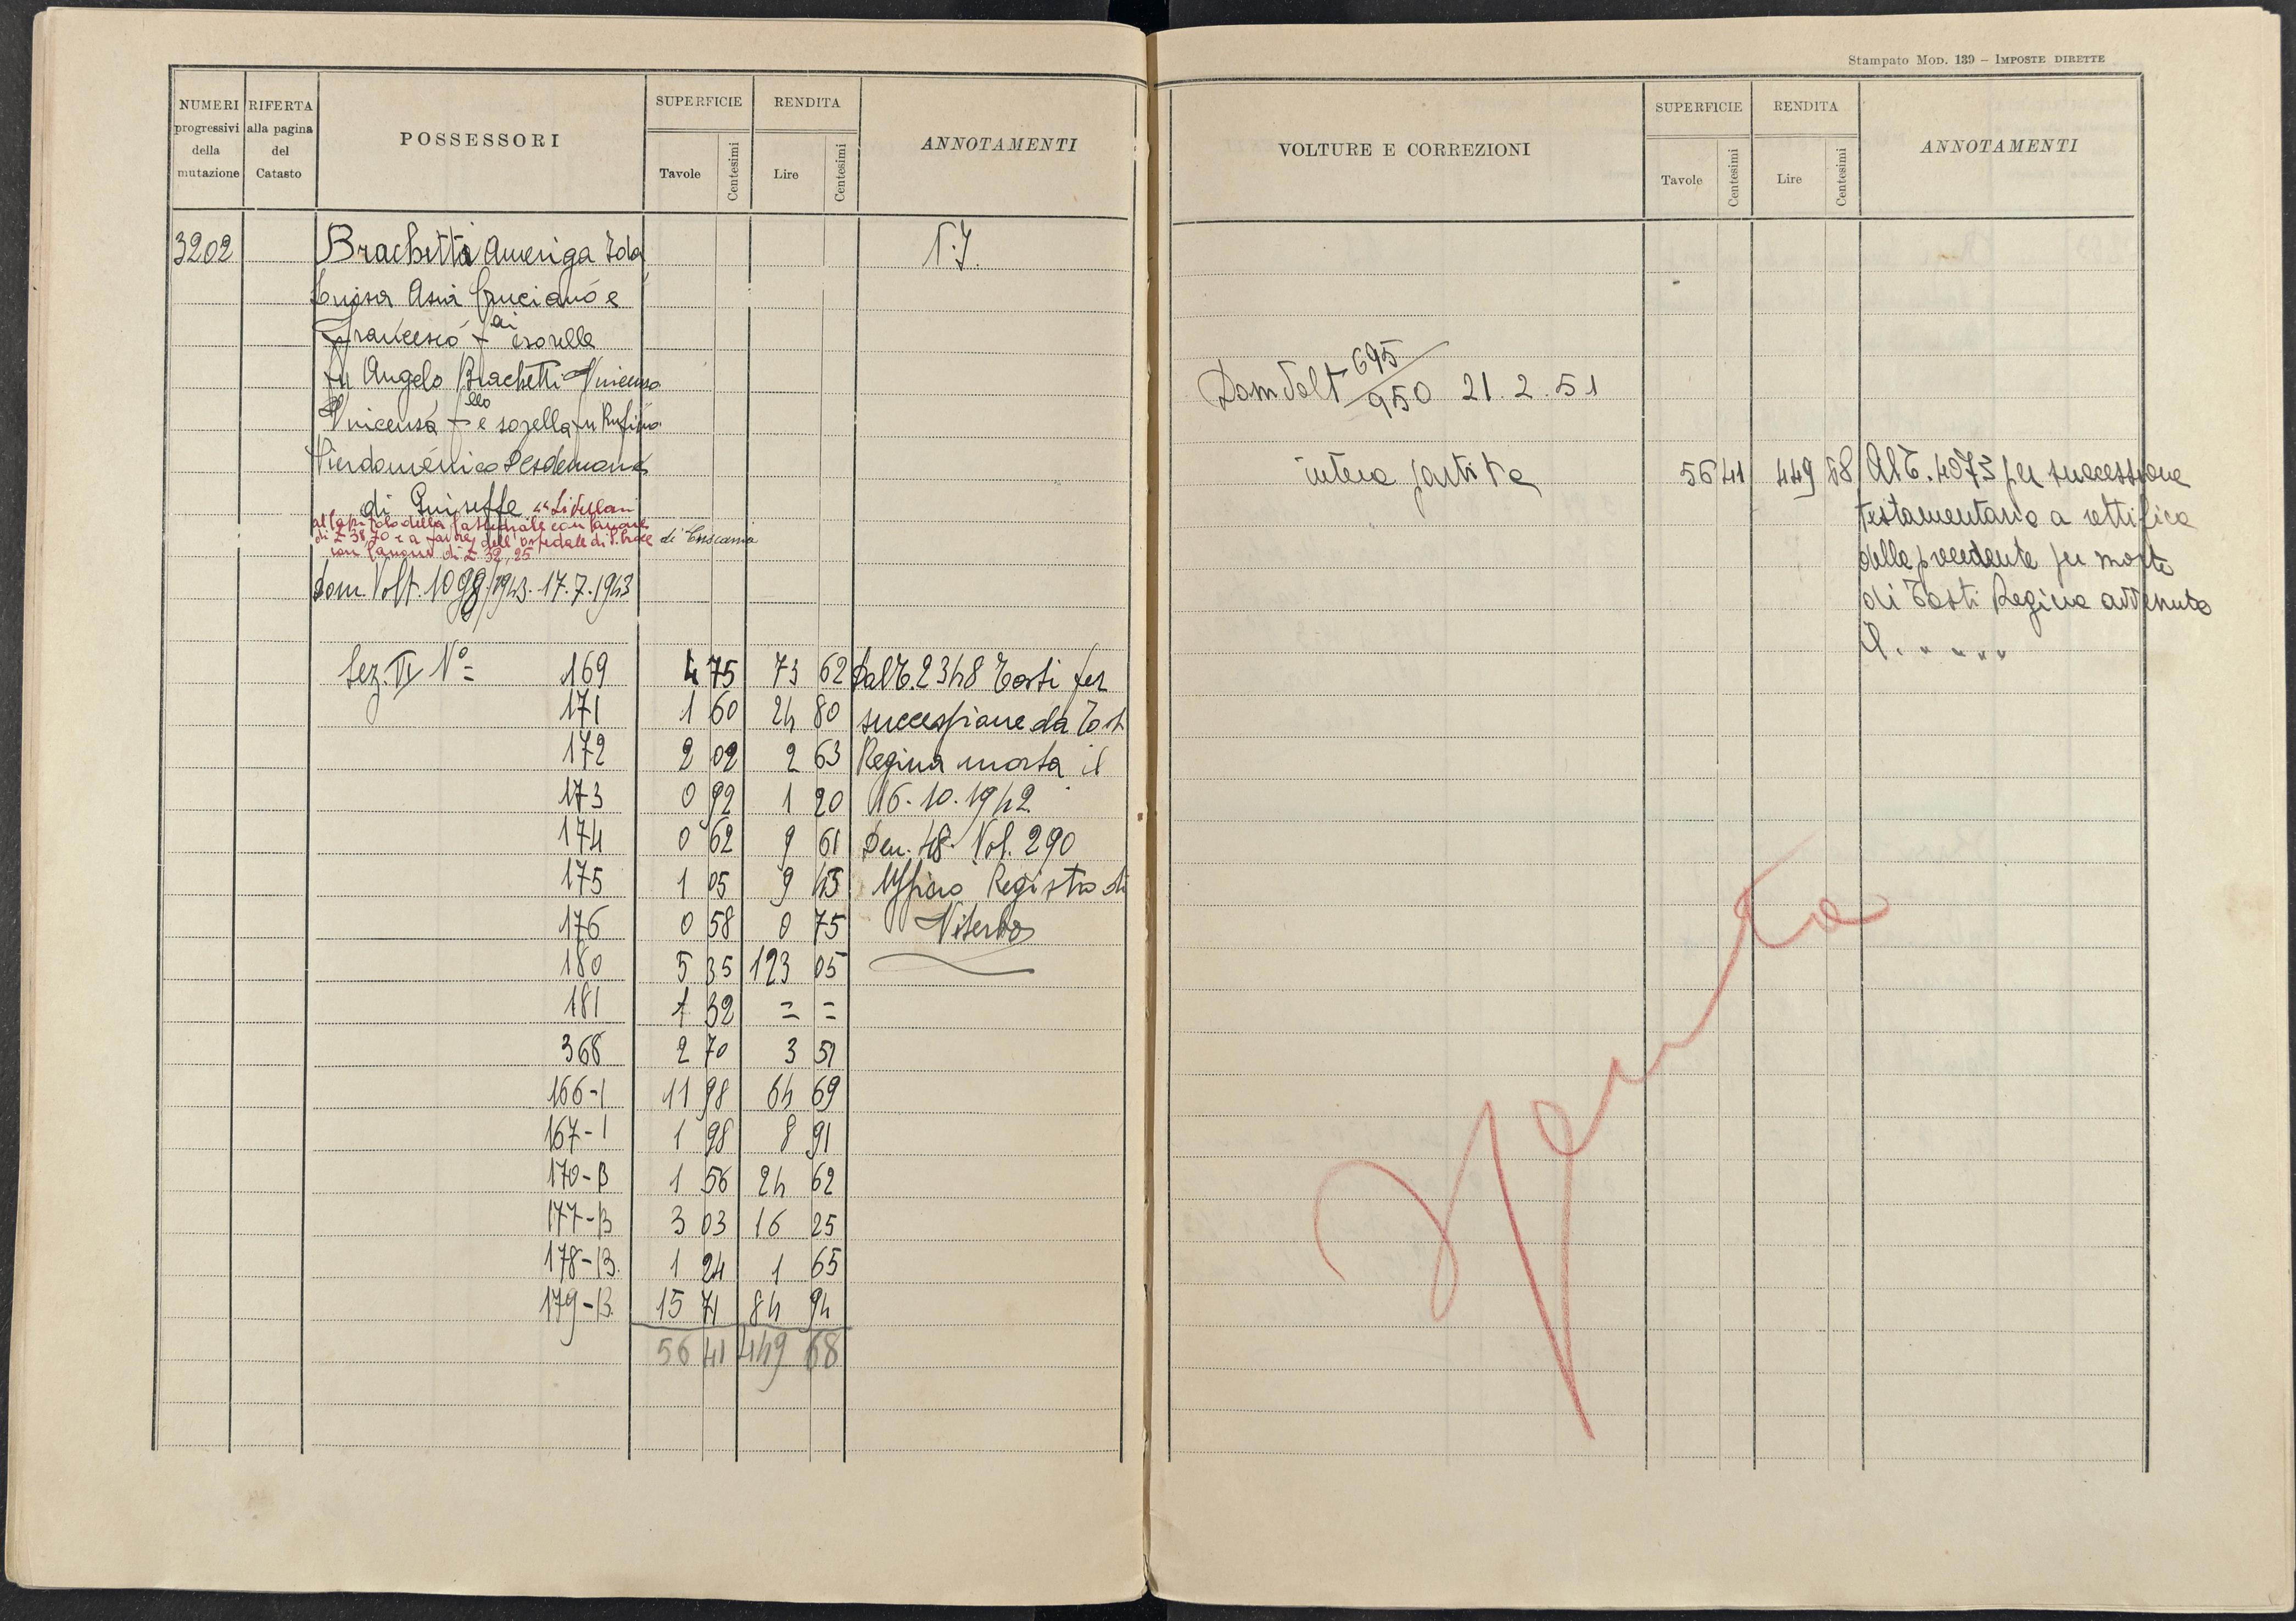 Stampato Mod. 139 – Imposte dirette
NUMERI progressivi della mutazione
RIFERTA alla pagina del Catasto
POSSESSORI
SUPERFICIE
Tavole
Centesimi
RENDITA
Lire
Centesimi
ANNOTAMENTI
3202 Brachetti Ameriga Ida
Luisa Asia Cruciano e
Francesco f.ai e sorelle
fu Angelo Brachetti Vincenzo
Vincenza f.llo e sorella fu Rufino
Pierdomenico Desdemona
di Giuseppe "Livellari
al Capitolo della Cattedrale con canone
di £ 38,70 e a favore dell'ospedale di S. Croce di Tuscania
con canone di £ 32,25
Dom. Volt. 1098/1943. 17.7.1943
Sez. VI Nº = 169 4 75 73 62 Dal T. 2348 Tosti per
171 1 60 24 80 successione da Tosti
172 2 02 2 63 Regina morta il
173 0 92 1 20 16.10.1942
174 0 62 9 61 Den. 48 Vol. 290
175 1 05 9 45 Ufficio Registro di
176 0 58 0 75 Viterbo
180 5 35 123 05
181 1 32 = =
368 2 70 3 51
166-1 11 98 64 69
167-1 1 98 8 91
170-B 1 56 24 62
177-B 3 03 16 25
178-B. 1 24 1 65
179-B. 15 71 84 94
56 41 449 68
VOLTURE E CORREZIONI
SUPERFICIE
Tavole
Centesimi
RENDITA
Lire
Centesimi
ANNOTAMENTI
Dom Volt 695/950 21.2.51
intera partita 56 41 449 68 Al T. 4073 per successione
testamentaria a rettifica
della precedente per morte
di Tosti Regina avvenuta
Spenta